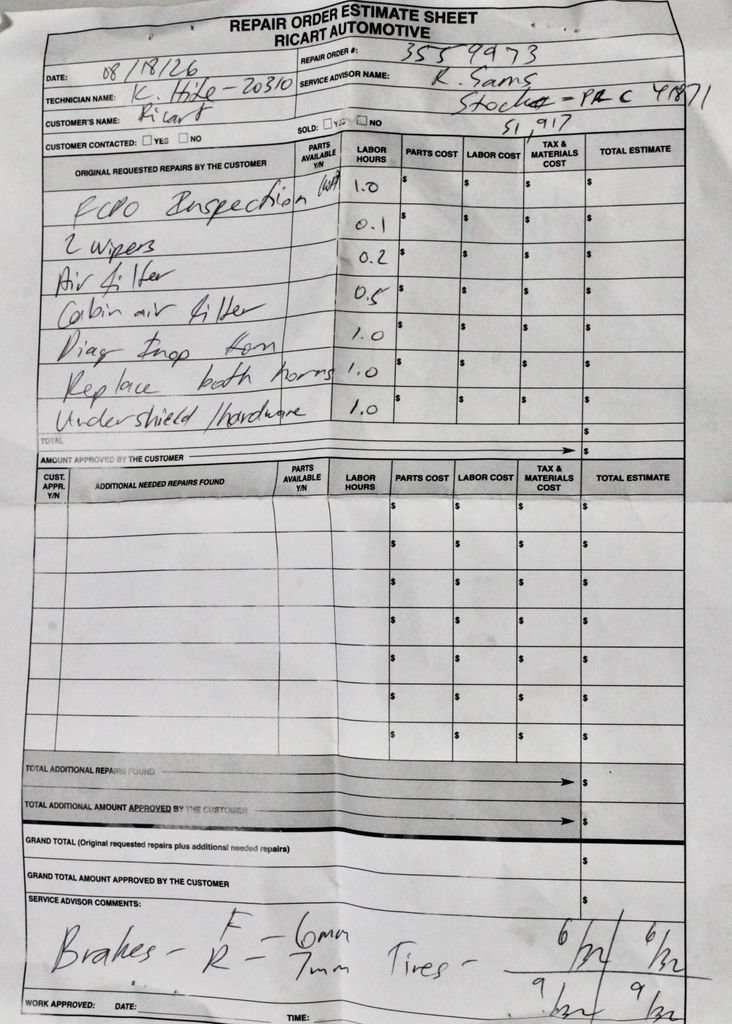 REPAIR ORDER ESTIMATE SHEET
RICART AUTOMOTIVE
DATE: 08/18/26
REPAIR ORDER #: 3559973
TECHNICIAN NAME: K. Hite - 20310
SERVICE ADVISOR NAME: R. Sams
CUSTOMER'S NAME: Ricart
Stock# = PRC 41871
CUSTOMER CONTACTED: YES NO
SOLD: YES NO
51,917
ORIGINAL REQUESTED REPAIRS BY THE CUSTOMER PARTS AVAILABLE Y/N LABOR HOURS PARTS COST LABOR COST TAX & MATERIALS COST TOTAL ESTIMATE
FCPO Inspection 1.0 $ $ $ $
2 wipers 0.1 $ $ $ $
Air filter 0.2 $ $ $ $
Cabin air filter 0.5 $ $ $ $
Diag Inop Horn 1.0 $ $ $ $
Replace both horns 1.0 $ $ $ $
Undershield/hardware 1.0 $ $ $ $
TOTAL $
AMOUNT APPROVED BY THE CUSTOMER $
CUST. APPR. Y/N ADDITIONAL NEEDED REPAIRS FOUND PARTS AVAILABLE Y/N LABOR HOURS PARTS COST LABOR COST TAX & MATERIALS COST TOTAL ESTIMATE
$ $ $ $
$ $ $ $
$ $ $ $
$ $ $ $
$ $ $ $
$ $ $ $
$ $ $ $
TOTAL ADDITIONAL REPAIRS FOUND $
TOTAL ADDITIONAL AMOUNT APPROVED BY THE CUSTOMER $
GRAND TOTAL (Original requested repairs plus additional needed repairs) $
GRAND TOTAL AMOUNT APPROVED BY THE CUSTOMER $
SERVICE ADVISOR COMMENTS:
Brakes - F - 6mm Tires - 6/32 6/32
R - 7mm 9/32 9/32
WORK APPROVED: DATE: TIME: